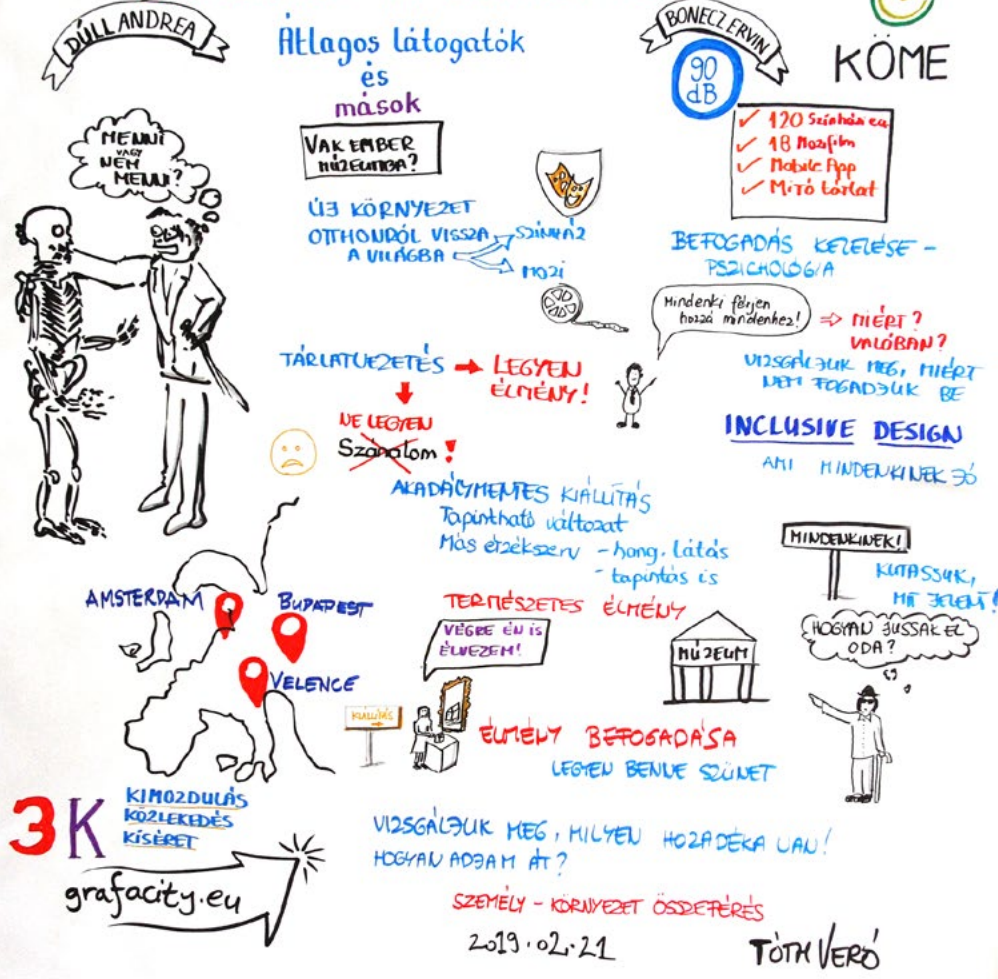 DÚLL ANDREA
Átlagos látogatók
és
mások
BONECZ ERVIN
90
dB
KÖME
MENNI
VAGY
NEM
MENNI?
VAK EMBER
MÚZEUMBA?
✓ 120 Színházi ea
✓ 18 Mozifilm
✓ Mobile App
✓ Miró tárlat
ÚJ KÖRNYEZET
OTTHONRÓL VISSZA
A VILÁGBA
SZÍNHÁZ
MOZI
BEFOGADÁS KEZELÉSE -
PSZICHOLÓGIA
Mindenki férjen
hozzá mindenhez!
⇒ MIÉRT?
VALÓBAN?
VIZSGÁLJUK MEG, MIÉRT
NEM FOGADJUK BE
TÁRLATVEZETÉS → LEGYEN
ÉLMÉNY!
NE LEGYEN
Szánalom!
INCLUSIVE DESIGN
AMI MINDENKINEK JÓ
AKADÁLYMENTES KIÁLLÍTÁS
Tapintható változat
Más érzékszerv - hang, látás
- tapintás is
MINDENKINEK!
KUTASSUK,
MIT JELENT!
AMSTERDAM
BUDAPEST
VELENCE
TERMÉSZETES ÉLMÉNY
VÉGRE ÉN IS
ÉLVEZEM!
MÚZEUM
HOGYAN JUSSAK EL
ODA?
KIÁLLÍTÁS
ÉLMÉNY BEFOGADÁSA
LEGYEN BENNE SZÜNET
3K
KIMOZDULÁS
KÖZLEKEDÉS
KÍSÉRET
VIZSGÁLJUK MEG, MILYEN HOZADÉKA VAN!
HOGYAN ADJAM ÁT?
grafacity.eu
SZEMÉLY - KÖRNYEZET ÖSSZEFÉRÉS
2019.02.21
TÓTH VERÓ